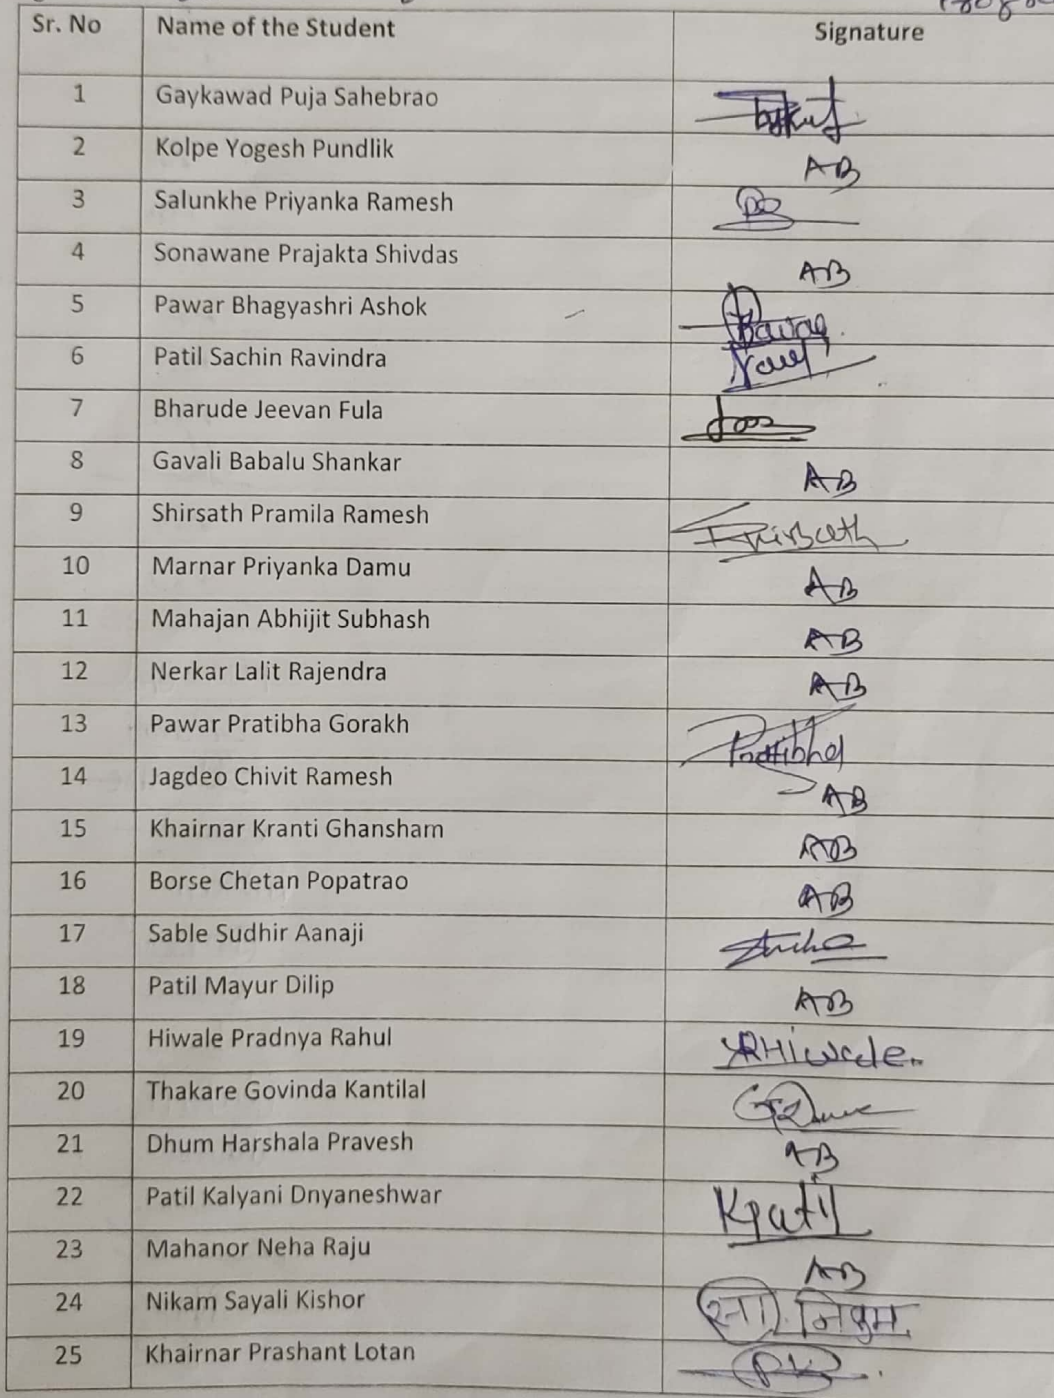 Sr. No Name of the Student Signature
1 Gaykawad Puja Sahebrao
2 Kolpe Yogesh Pundlik AB
3 Salunkhe Priyanka Ramesh
4 Sonawane Prajakta Shivdas AB
5 Pawar Bhagyashri Ashok
6 Patil Sachin Ravindra
7 Bharude Jeevan Fula
8 Gavali Babalu Shankar AB
9 Shirsath Pramila Ramesh
10 Marnar Priyanka Damu AB
11 Mahajan Abhijit Subhash AB
12 Nerkar Lalit Rajendra AB
13 Pawar Pratibha Gorakh Pratibha
14 Jagdeo Chivit Ramesh AB
15 Khairnar Kranti Ghansham AB
16 Borse Chetan Popatrao AB
17 Sable Sudhir Aanaji
18 Patil Mayur Dilip AB
19 Hiwale Pradnya Rahul
20 Thakare Govinda Kantilal
21 Dhum Harshala Pravesh AB
22 Patil Kalyani Dnyaneshwar Kpatil
23 Mahanor Neha Raju AB
24 Nikam Sayali Kishor सा. निकम.
25 Khairnar Prashant Lotan